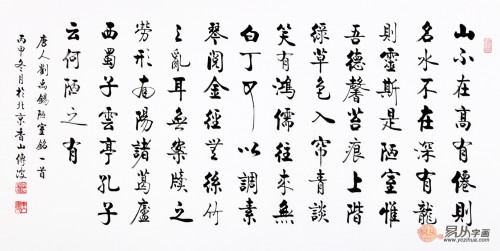 山不在高有僊則
名水不在深有龍
則靈斯是陋室惟
吾德馨苔痕上階
綠草色入帘青談
笑有鴻儒往来無
白丁可以調素
琴閱金經無絲竹
之亂耳無案牘之
勞形南陽諸葛廬
西蜀子雲亭孔子
云何陋之有
唐人劉禹錫陋室銘一首
丙申冬月於北京香山
易从字画